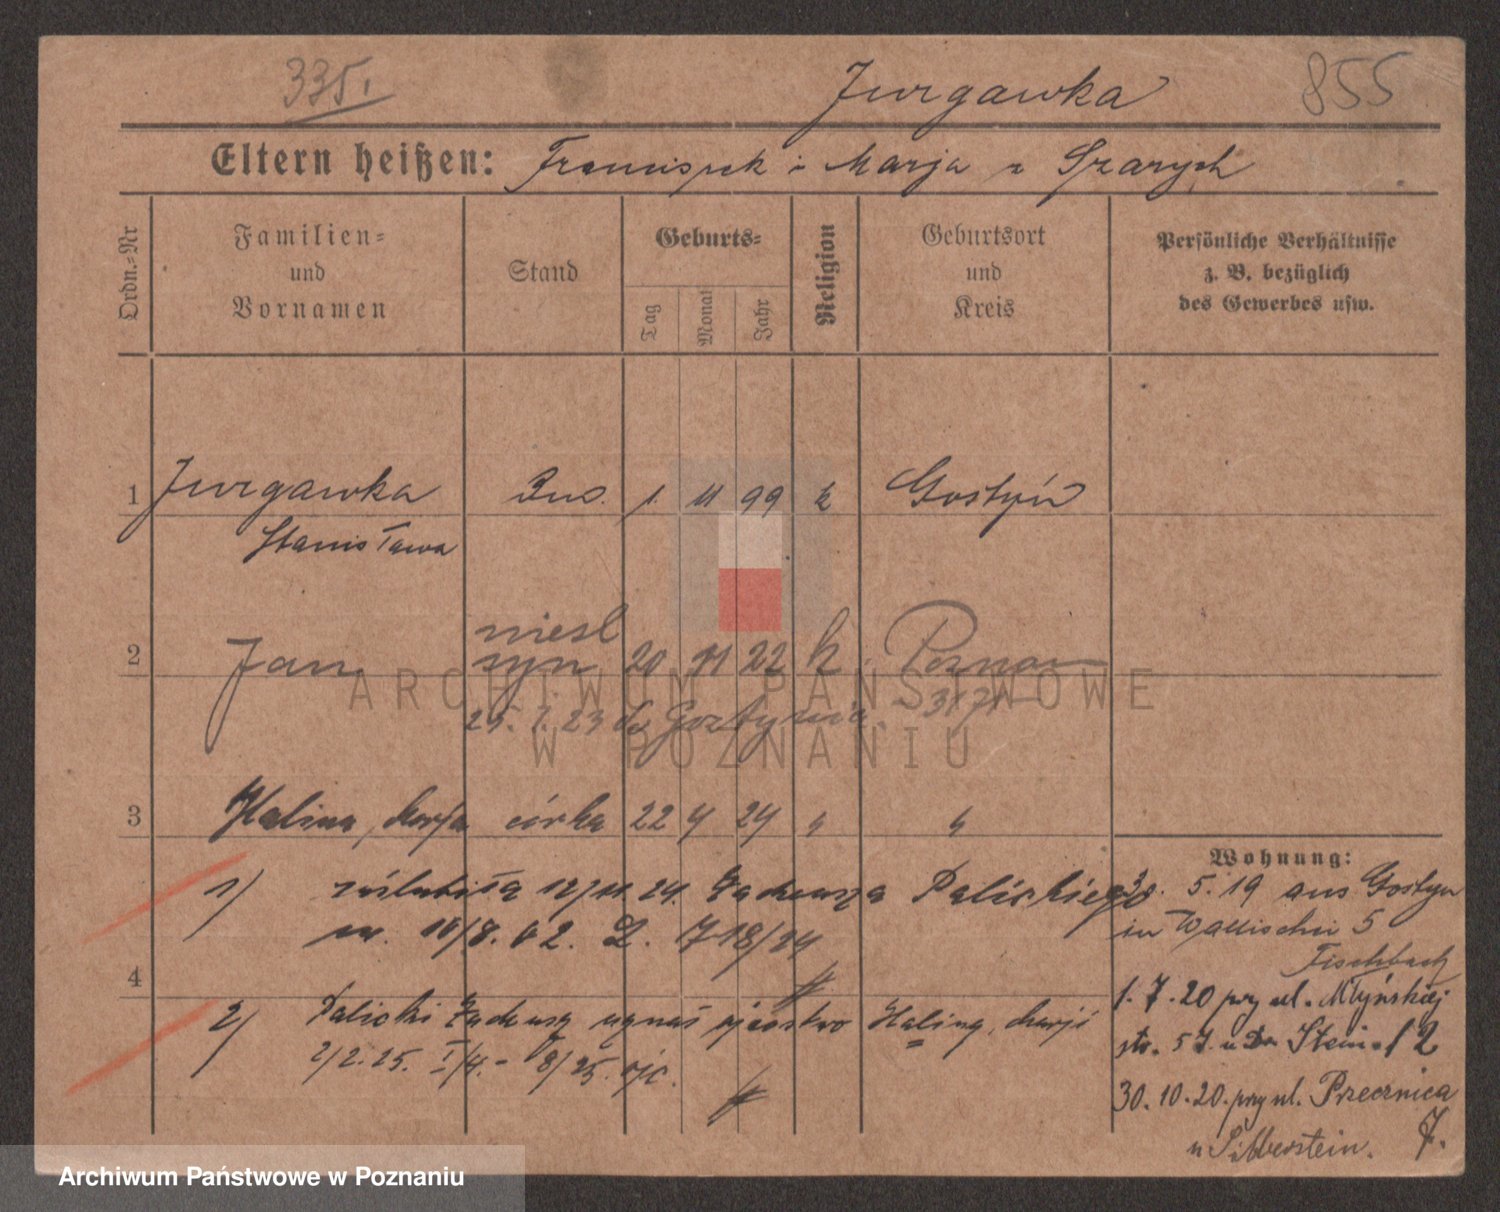 335.
Jurgawka
855
Eltern heißen: Franciszek i Marja z Szarych
Ordn.-Nr
Familien-
und
Vornamen
Stand
Geburts-
Tag
Monat
Jahr
Religion
Geburtsort
und
Kreis
Persönliche Verhältnisse
z. B. bezüglich
des Gewerbes usw.
1 Jurgawka 1. 11 99 k Gostyń
Stanisława
niesl
2 Jan syn 20 11 22 k Poznań
23 do Gostynia
3 Halina, Marja córka 22 4 24
Wohnung:
1) zaślubiła 12/11. 24. Tadeusza Palickiego
ur. 10/8. 02. Z. 718/24
4
2) Palicki Tadeusz uznał ojcostwo Halina, Marji
2/2. 25. I/4. - 8/25.
30. 5. 19 aus Gostyn
in Wallischei 5
Fischbach
1. 7. 20 przy ul. Młyńskiej
str. 5 I. u Stein
30. 10. 20. przy ul. Przecznica 7.
u Silberstein.
ARCHIWUM PAŃSTWOWE
W POZNANIU
Archiwum Państwowe w Poznaniu